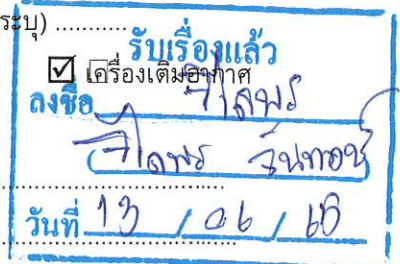 ระบุ) ...........
รับเรื่องแล้ว
☑ เครื่องเติมอากาศ
ลงชื่อ วิไลพร
(วิไลพร จันทอง)
วันที่ 13 / 06 / 65